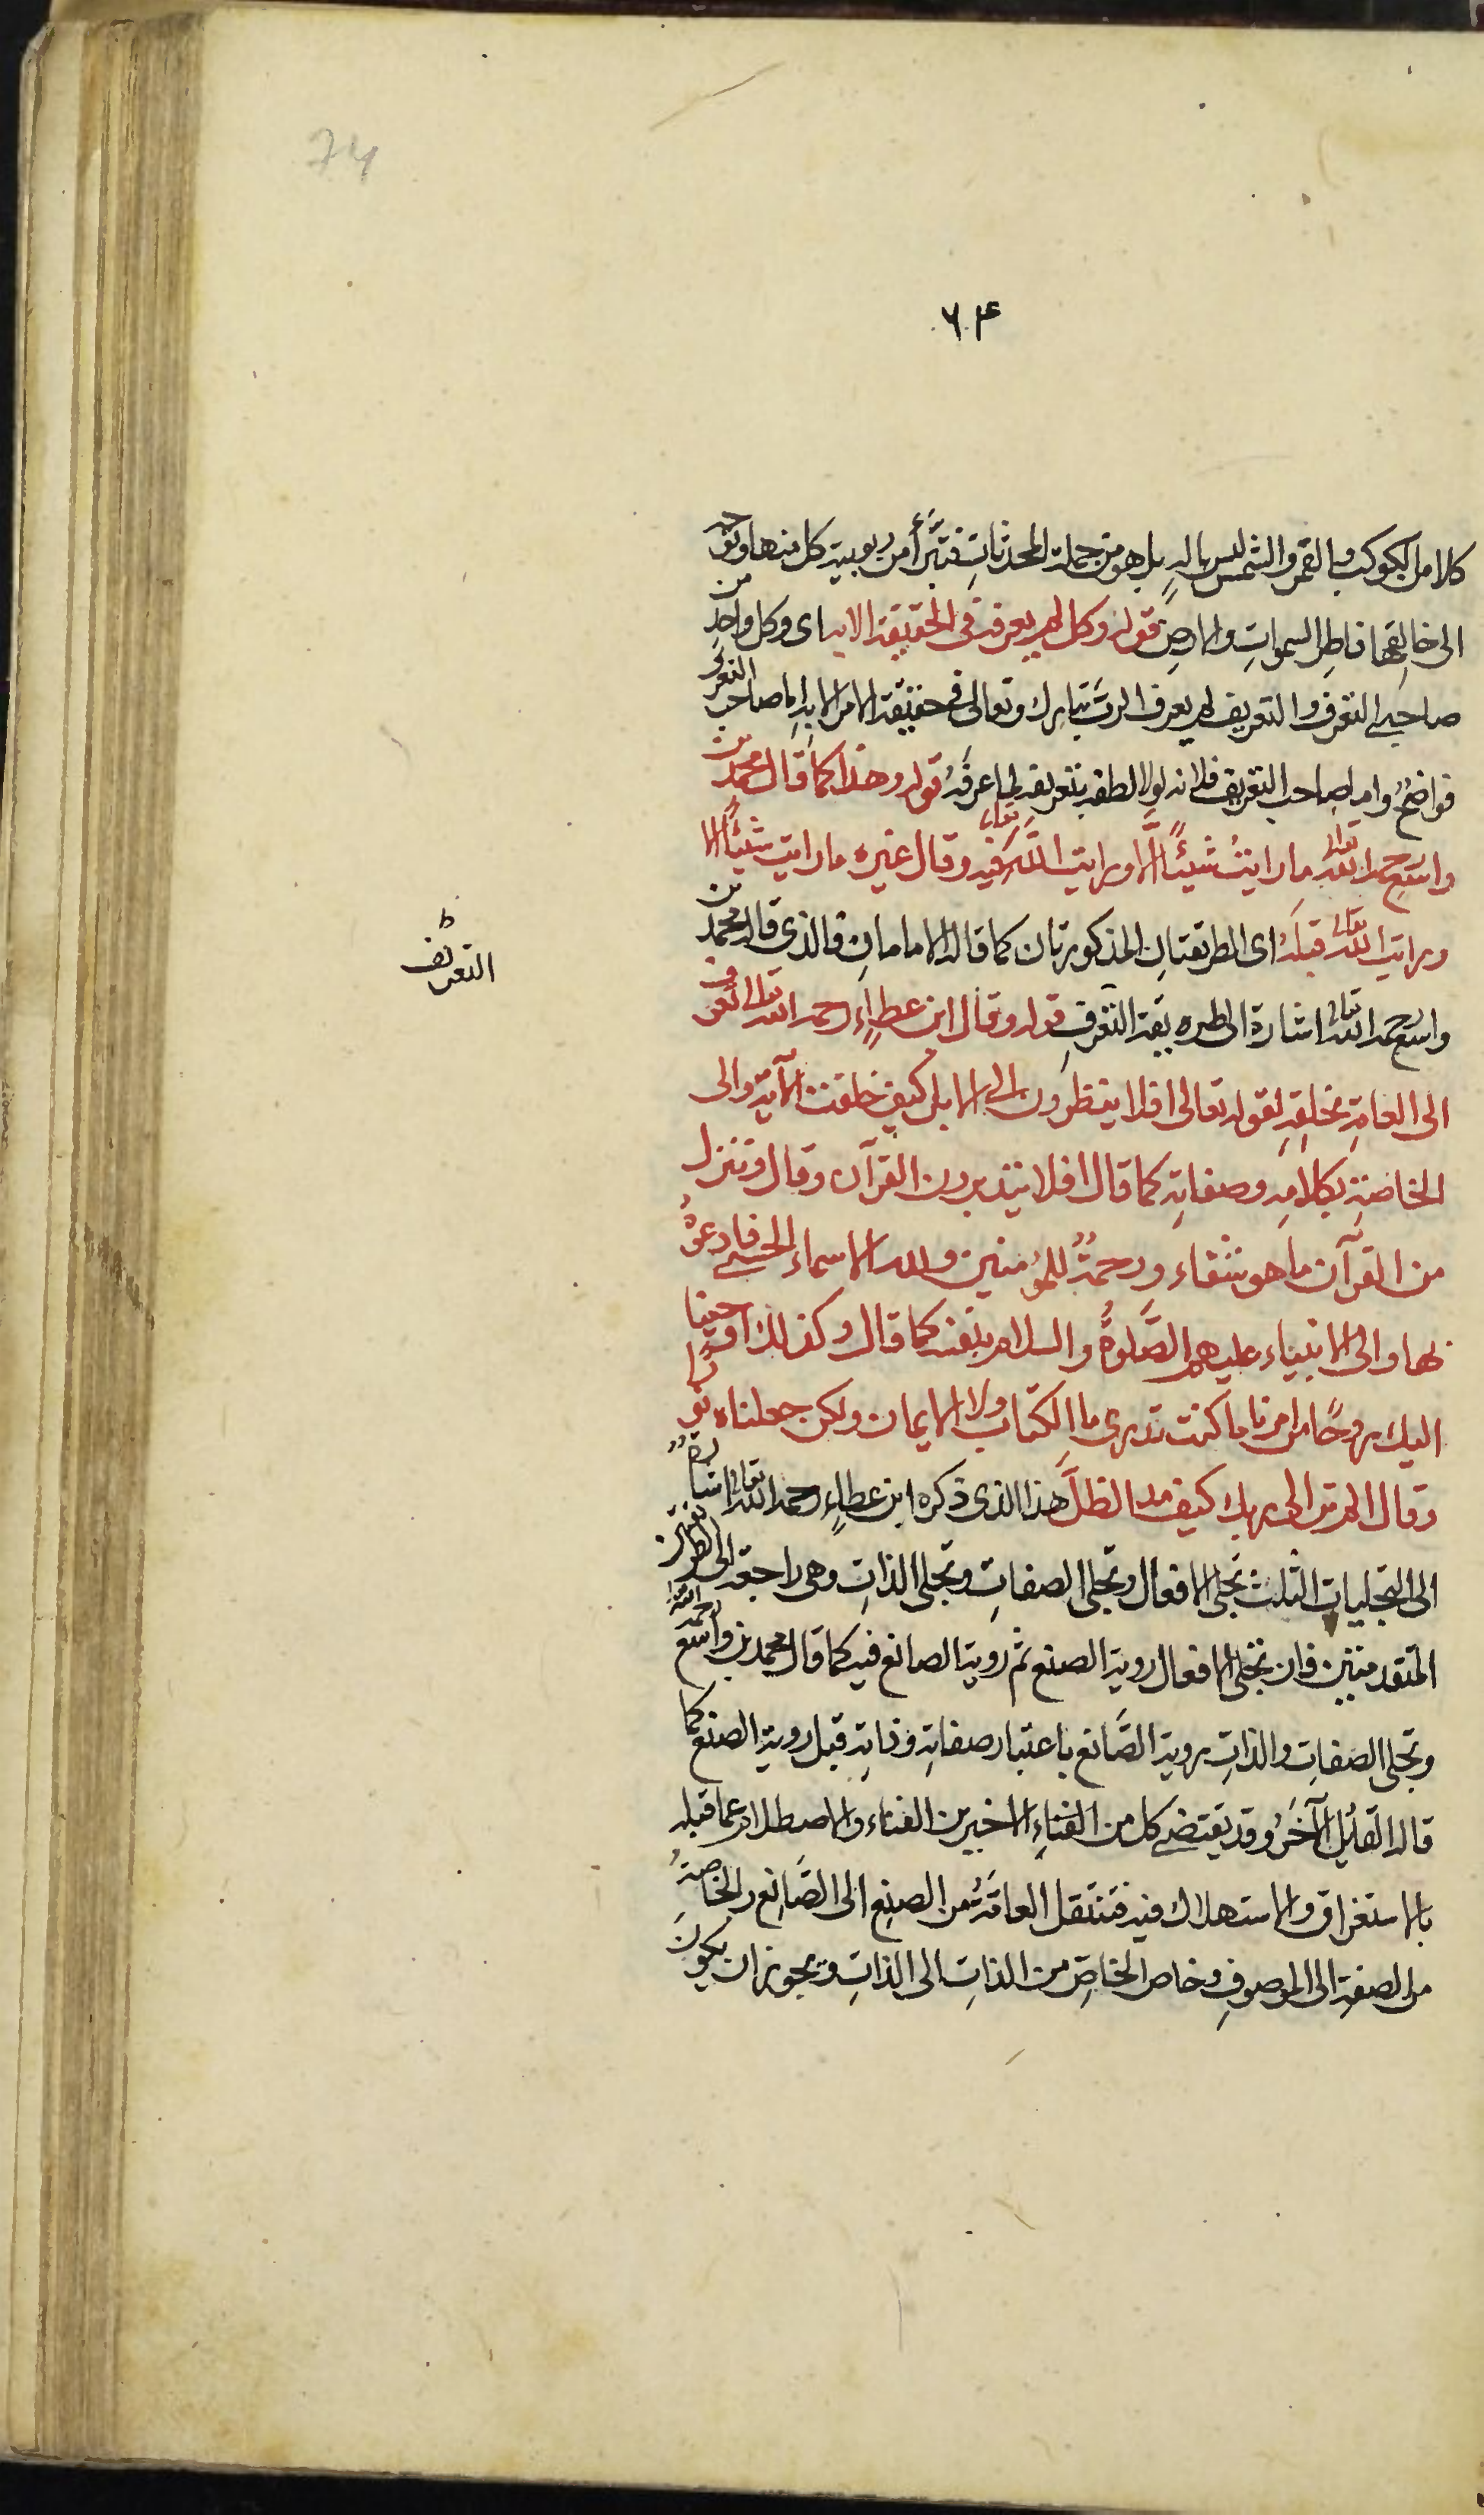 74
٦٤
كلا من الكوكب والقمر والشمس ليس بالهٍ بل هو من جملة المحدثاتِ فتبَرَّأ من ربوبية كل منها وتوجه
الى خالِقِها فاطِرِ السمواتِ والارضِ قوله وكل لم يعرفه فى الحقيقة الا به اى وكل واحدٍ من
صاحبَىِ التعرفِ والتعريف لم يعرف الربّ تبارك وتعالى فى حقيقة الامر الا به اما صاحب التعرف
فواضحٌ واما صاحب التعريف فلانه لولا لطفه بتعريفه لما عرفَهُ قوله وهذا كما قال محمد بن
واسع رحمه الله تعالى ما رايتُ شيئًا الَّا ورايت اللّه تعالى فيه وقال غيره ما رايت شيئًا الا
ورايت اللّه تعالى قبلَهُ اى الطريقتانِ المذكورتان كما قاله الامامانِ فالذى قاله محمد بن
واسع رحمه الله تعالى اشارة الى طريقة التعرفِ قوله وقال ابن عطاءٍ رحمه الله تعالى تعرف
الى العامةِ بخلقِهِ لقوله تعالى افلا ينظرون الى الابل كيف خلقت الآية والى
الخاصةِ بكلامِهِ وصفاتِهِ كما قال افلا يتدبرون القرآن وقال وننزل
من القرآن ما هو شفاء ورحمةٌ للمؤمنين ولله الاسماء الحسنى فادعوهُ
بها والى الانبياء عليهم الصَّلوةُ والسلام بنفسه كما قال وكذلك اوحينا
اليك روحًا من امرنا ما كنت تدرى ما الكتاب ولا الايمان ولكن جعلناه نورًا
وقال الم تر الى ربك كيف مد الظلَّ هذا الذى ذكره ابن عطاءٍ رحمه الله تعالى اشارةٌ
الى التجليات الثلث تجلى الافعال وتجلى الصفاتِ وتجلى الذاتِ وهى راجعة الى الطريقتين
المتقدمتين فان تجلى الافعال روية الصنع ثم روية الصانع فيه كما قال محمد بن واسع رحمه الله
وتجلى الصفاتِ والذاتِ بروية الصَّانع باعتبار صفاتِهِ وذاتِهِ قبل روية الصنع كما
قاله القايُل الآخَرُ وقد يقتضى كل من الفناءِ الاخيرين الفناء والاصطلام عما قبله
بالاستغراق والاستهلاك فيه فتنتقل العامَّةُ من الصنعِ الى الصَّانِع والخاصةُ
من الصفةِ الى الموصوفِ وخاص الخاصِّ من الذاتِ الى الذاتِ ويجوز ان يكونَ
ط
التعريف